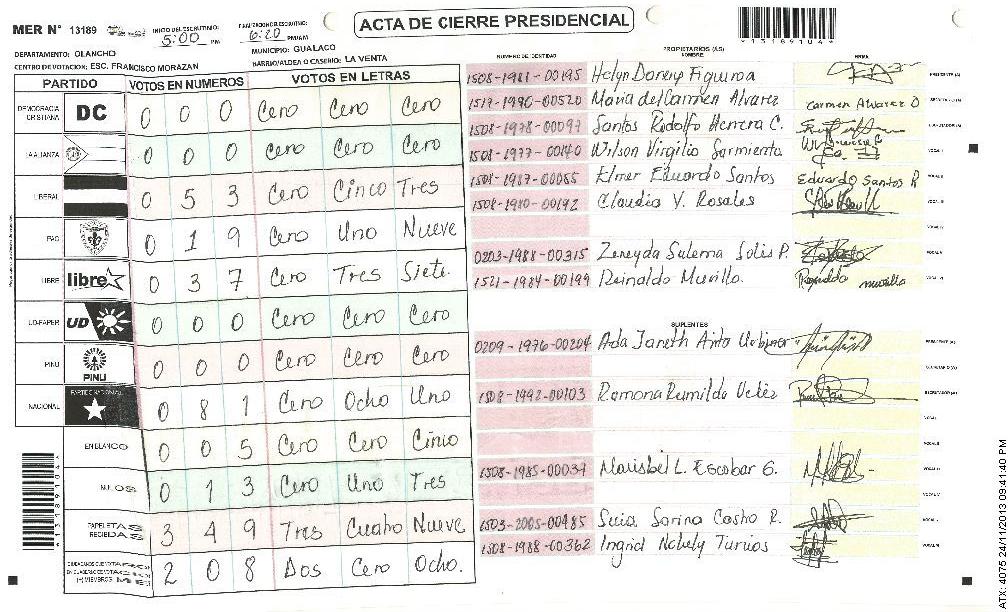 ACTA DE CIERRE PRESIDENCIAL
MER N° 13189
INICIO DEL ESCRUTINIO: 5:00 PM
FINALIZACION DE ESCRUTINIO: 6:20 PM/AM
*13189104*
DEPARTAMENTO: OLANCHO
MUNICIPIO: GUALACO
CENTRO DE VOTACION: ESC. FRANCISCO MORAZAN
BARRIO/ALDEA O CASERIO: LA VENTA
PARTIDO VOTOS EN NUMEROS VOTOS EN LETRAS
DEMOCRACIA CRISTIANA DC 0 0 0 Cero Cero Cero
ALIANZA 0 0 0 Cero Cero Cero
LIBERAL 0 5 3 Cero Cinco Tres
PAC 0 1 9 Cero Uno Nueve
LIBRE libre 0 3 7 Cero Tres Siete
UD-FAPER UD 0 0 0 Cero Cero Cero
PINU PINU 0 0 0 Cero Cero Cero
NACIONAL PARTIDO NACIONAL 0 8 1 Cero Ocho Uno
EN BLANCO 0 0 5 Cero Cero Cinco
NULOS 0 1 3 Cero Uno Tres
PAPELETAS RECIBIDAS 3 4 9 Tres Cuatro Nueve
2 0 8 Dos Cero Ocho.
*13189104*
NUMERO DE IDENTIDAD PROPIETARIOS (AS) NOMBRE FIRMA
1508-1981-00195 Helyn Doreny Figueroa PRESIDENTE (A)
1517-1990-00520 Maria del Carmen Alvarez Carmen Alvarez O SECRETARIO (A)
1508-1978-00097 Santos Rodolfo Herrera C. ESCRUTADOR (A)
1508-1977-00140 Wilson Virgilio Sarmiento VOCAL I
1508-1987-00085 Elmer Eduardo Santos Eduardo Santos R VOCAL II
1508-1980-00192 Claudia Y. Rosales VOCAL III
0203-1988-00315 Zeneyda Sulema Solis P. VOCAL V
1521-1984-00199 Reinaldo Murillo. Reynaldo murillo
SUPLENTES
0209-1976-00204 Ada Janeth Urbina PRESIDENTE (A)
SECRETARIO (A)
1508-1992-00103 Ramona Rumilda Velez ESCRUTADOR (A)
VOCAL I
VOCAL II
1508-1985-00034 Marisbel L. Escobar G. VOCAL III
VOCAL IV
1503-2005-00485 Suia Sarina Castro R. VOCAL V
1508-1988-00362 Ingrid Nohely Turcios VOCAL VI
ATX: 4075 24/11/2013 09:41:40 PM